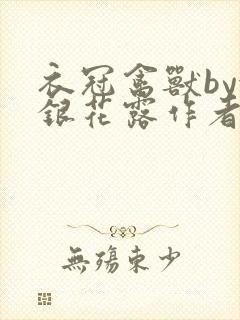 衣冠禽獸by
銀花露作者
無殤東少